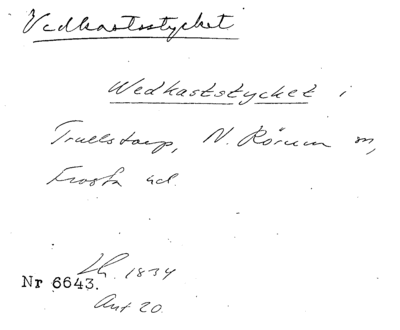 Vedkastsstycket
Wedkaststycket i
Truelstorp, N. Rörum sn,
Frosta hd.
Lh. 1834
Nr 6643.
Akt 20.